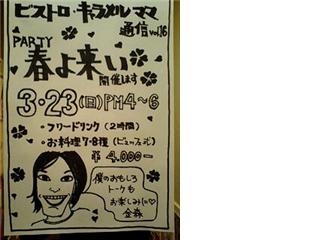 ビストロ・キャラメルママ
通信 vol.16
PARTY
春よ来い
開催します
3・23(日)PM4〜6
・フリードリンク(2時間)
・お料理7・8種(ビュッフェ式)
¥4.000―
僕のおもしろ
トークも
お楽しみに♡
金森